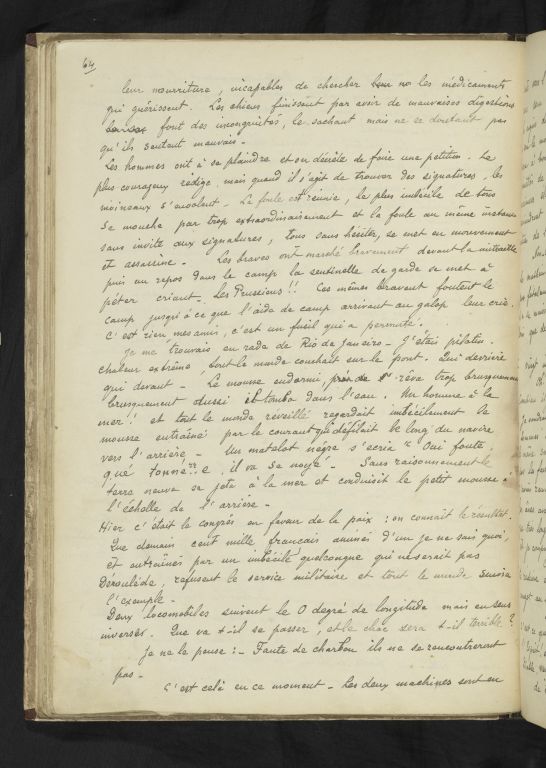 64
leur nourriture, incapables de chercher les médicaments
qui guérissent. Les chiens finissent par avoir de mauvaises digestions
font des incongruités, le sachant mais ne se doutant pas
qu'ils sentent mauvais -
Les hommes ont à se plaindre et on décrète de faire une pétition. Le
plus courageux rédige, mais quand il s'agit de trouver des signatures, les
moineaux s'envolent - La foule est réunie, le plus imbécile de tous
se mouche par trop extraordinairement et la foule au même instant
sans invite aux signatures, tous sans hésiter, se met en mouvement
et assassine - Les braves ont marché bravement devant la mitraille
puis au repos dans le camp la sentinelle de garde se met à
péter criant - les Prussiens!! Ces mêmes braves foutent le
camp jusqu'à ce que l'aide de camp arrivant au galop leur crie.
C'est rien mes amis, c'est un fusil qui a
Je me trouvais en rade de Rio de Janeiro - J'étais pilotin.
Chaleur extrême, tout le monde couchait sur le pont. Qui derrière
qui devant - Le mousse endormi, rêva trop brusquement
brusquement aussi et tomba dans l'eau. Un homme à la
mer!! et tout le monde réveillé regardait imbécilement le
mousse entraîné par le courant qui défilait le long du navire
vers l'arrière - Un matelot nègre s'écria "Oui foute
il va se noyé - Sans raisonnement le
terre neuve se jeta à la mer et conduisit le petit mousse à
l'échelle de l'arrière -
Hier c'était le congrès en faveur de la paix: on connaît le résultat.
Que demain cent mille français animés d'un je ne sais quoi,
et entraînés par un imbécile quelconque qui ne serait pas
Déroulède, refusent le service militaire et tout le monde suivra
l'exemple -
Deux locomobiles suivent le 0 degré de longitude mais en sens
inverses. Que va t-il se passer, et le choc sera t-il terrible?
Je ne le pense: - Faute de charbon ils ne se rencontreront
pas -
C'est celà en ce moment - Les deux machines sont en